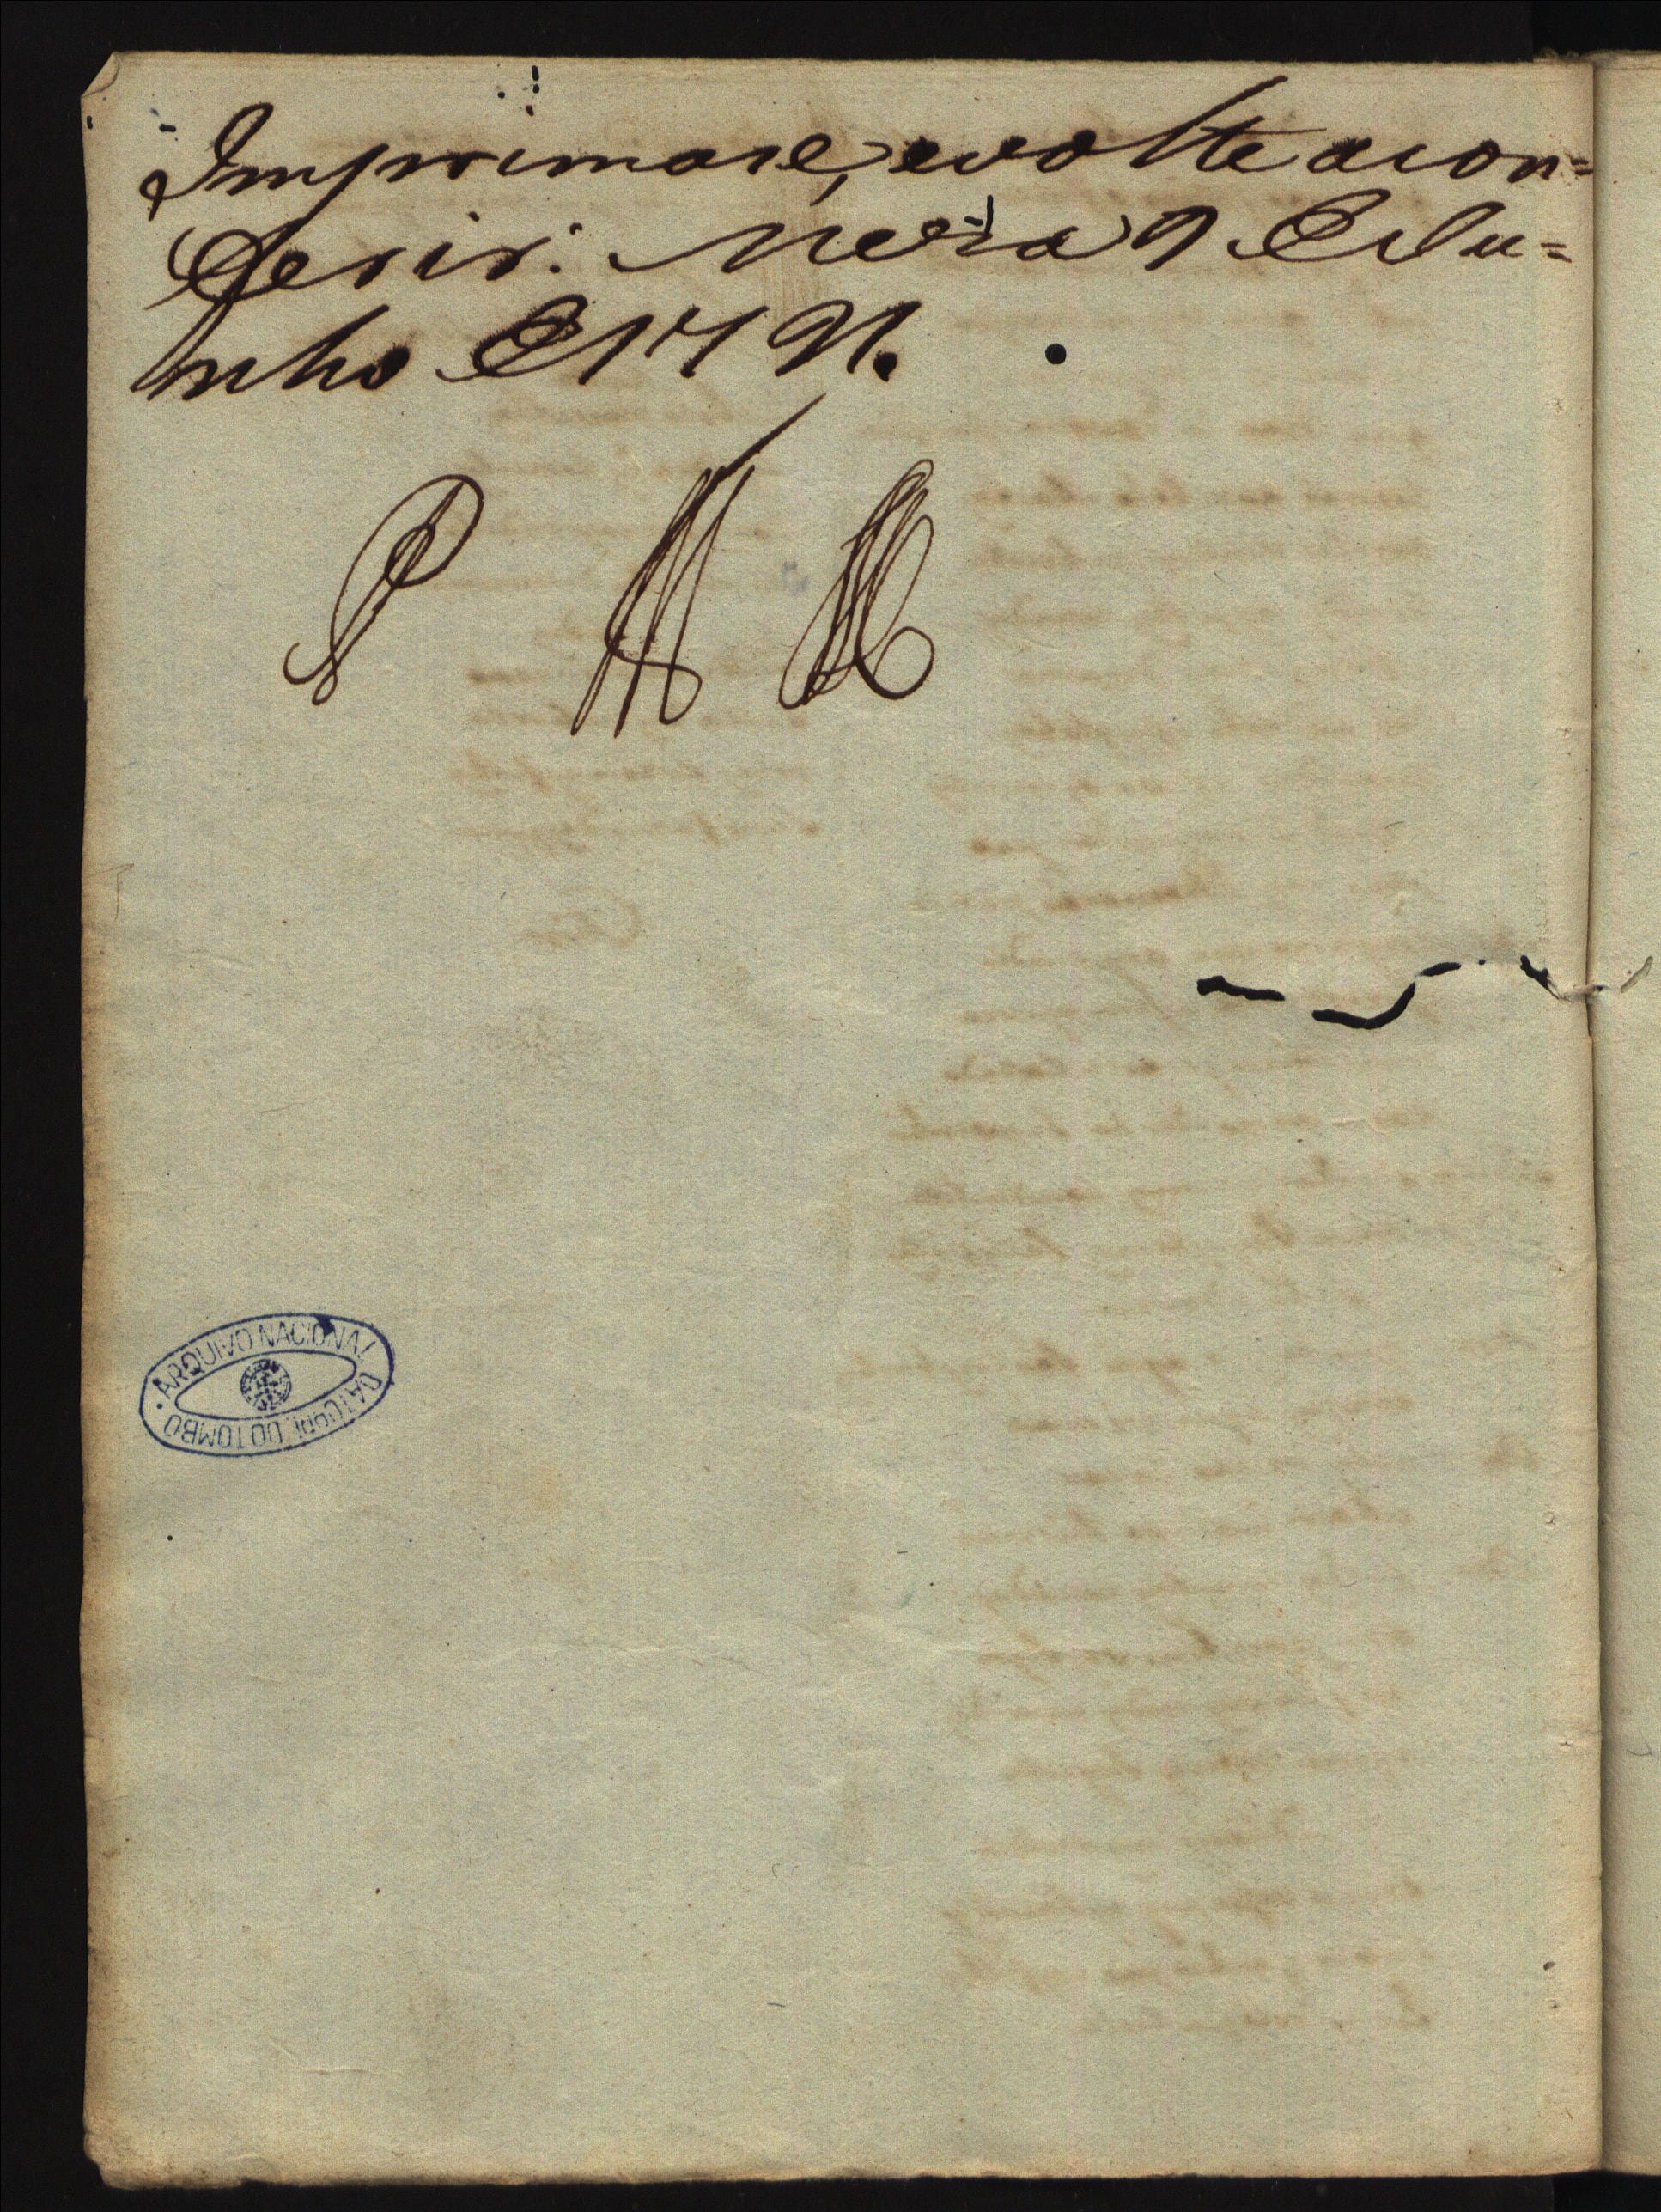 Imprimase, e volte a con=
ferir. Meza 9 de Ju=
nho de 1791.
ARQUIVO NACIONAL DA TORRE DO TOMBO